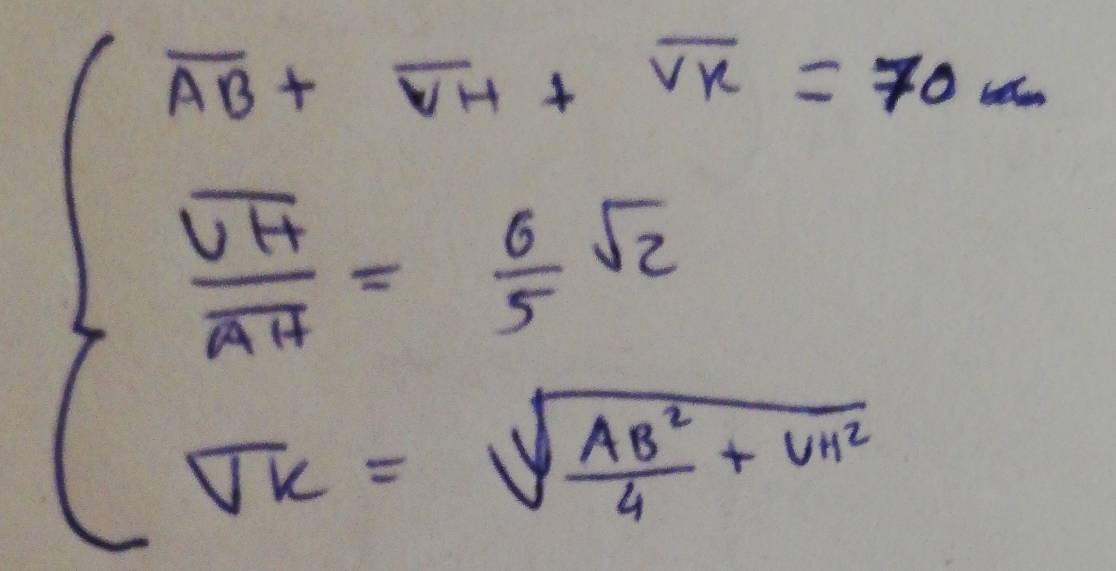 AB + VH + VK = 70 cm
VH/AH = 6/5 √2
VK = √(AB²/4 + VH²)